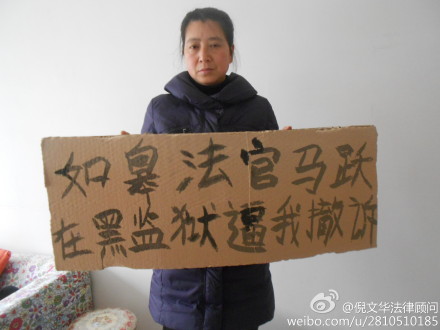 如皋法官马跃
在黑监狱逼我撤诉
@倪文华法律顾问
weibo.com/u/2810510185